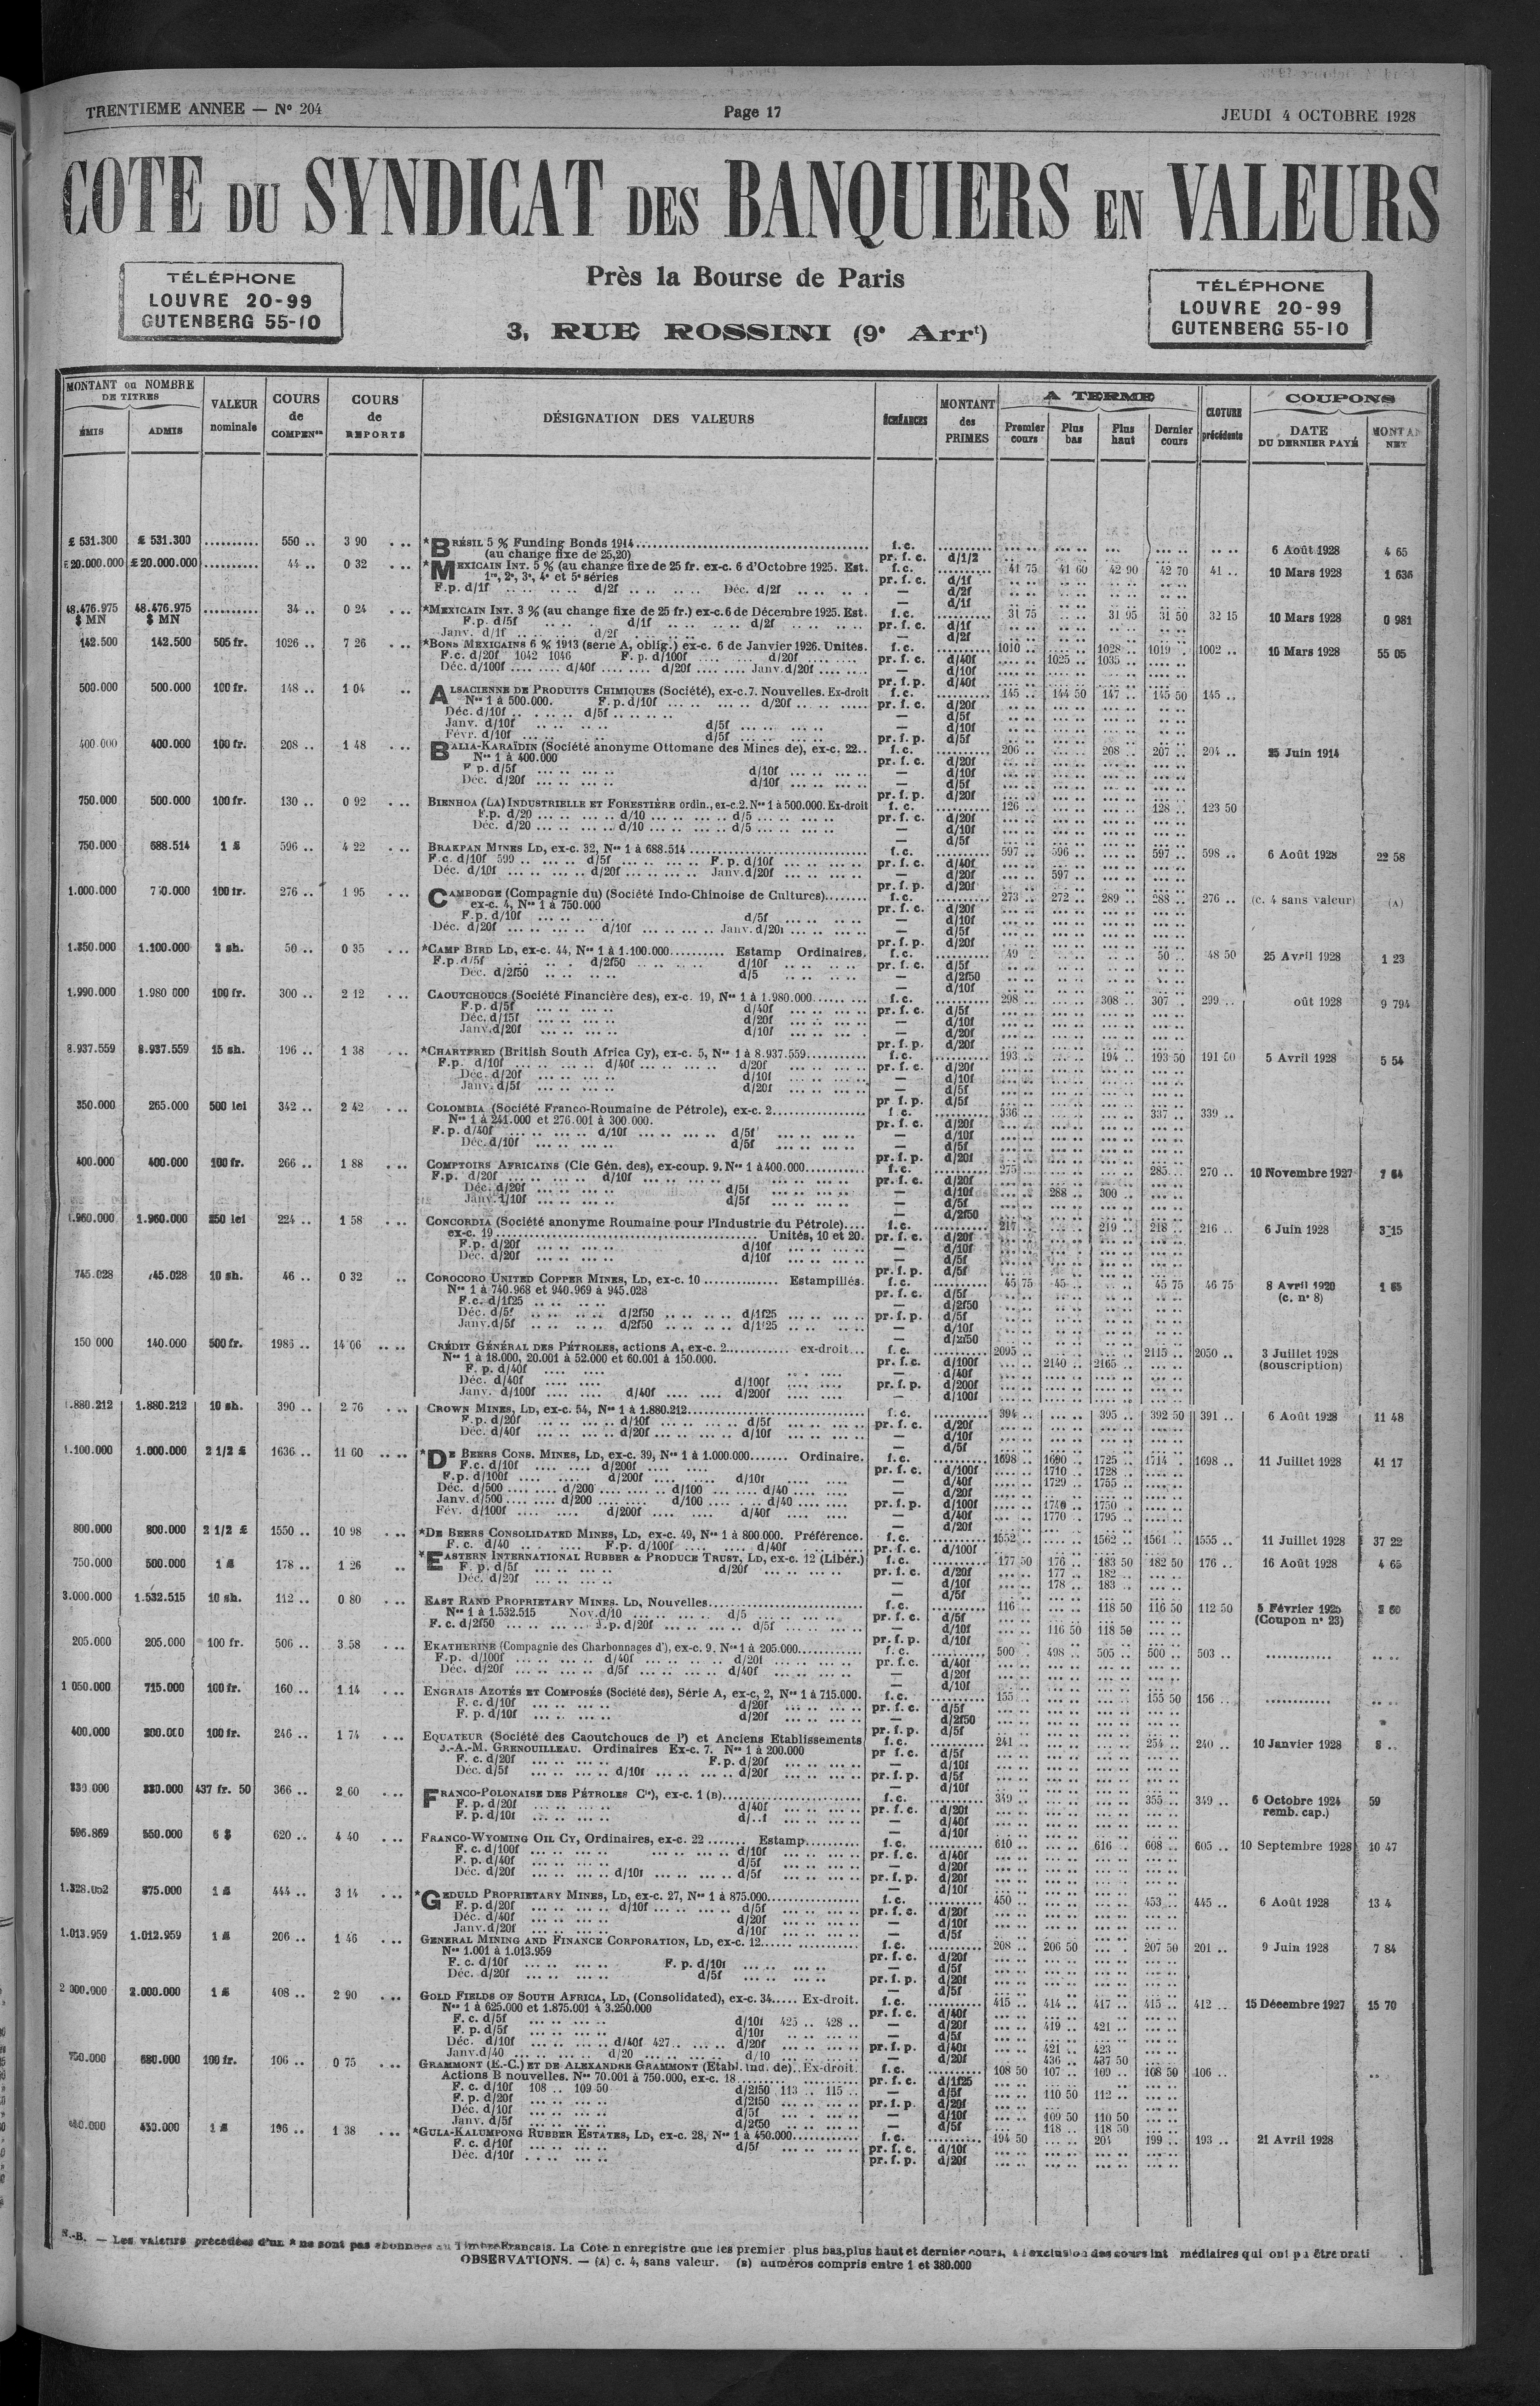 TRENTIEME ANNEE — N° 204
Page 17
JEUDI 4 OCTOBRE 1928
COTE DU SYNDICAT DES BANQUIERS EN VALEURS
TÉLÉPHONE
LOUVRE 20-99
GUTENBERG 55-10
Près la Bourse de Paris
3, RUE ROSSINI (9e Arrt)
TÉLÉPHONE
LOUVRE 20-99
GUTENBERG 55-10
MONTANT ou NOMBRE DE TITRES
ÉMIS
ADMIS
VALEUR nominale
COURS de COMPENon
COURS de REPORTS
DÉSIGNATION DES VALEURS
ÉCHÉANCES
MONTANT des PRIMES
A TERME
Premier cours
Plus bas
Plus haut
Dernier cours
CLOTURE précédente
COUPONS
DATE DU DERNIER PAYÉ
NET
£ 531.300 £ 531.300 .......... 550 .. 3 90 *BRÉSIL 5 % Funding Bonds 1914 f.c. 6 Août 1928 4 65
(au change fixe de 25,20) pr. f. c. d/1/2
£20.000.000 £20.000.000 .......... 44 .. 0 32 *MEXICAIN INT. 5 % (au change fixe de 25 fr. ex-c. 6 d'Octobre 1925. Est. f.c. 41 75 41 60 42 90 42 70 41 .. 10 Mars 1928 1 636
1re, 2e, 3e, 4e et 5e séries pr. f. c. d/1f
F.p. d/1f d/2f Déc. d/2f — d/2f
48.476.975 48.476.975 .......... 34 .. 0 24 *MEXICAIN INT. 3 % (au change fixe de 25 fr.) ex-c. 6 de Décembre 1925. Est. f.c. 31 75 31 95 31 50 32 15 10 Mars 1928 0 981
$ MN $ MN F.p. d/5f d/1f d/2f pr. f. c. d/1f
Janv. d/1f d/2f — d/2f
142.500 142.500 505 fr. 1026 .. 7 26 *BONS MEXICAINS 6 % 1913 (série A, oblig.) ex-c. 6 de Janvier 1926. Unités. f.c. 1010 .. 1028 .. 1019 .. 1002 .. 10 Mars 1928 55 05
F.c. d/20f 1042 1046 F. p. d/100f d/20f pr. f. c. d/40f 1025 .. 1035 ..
Déc. d/100f d/40f d/20f Janv. d/20f — d/10f
500.000 500.000 100 fr. 148 .. 1 04 ALSACIENNE DE PRODUITS CHIMIQUES (Société), ex-c.7. Nouvelles. Ex-droit f.c. 145 .. 144 50 147 .. 145 50 145 ..
Nos 1 à 500.000. F. p. d/10f d/20f pr. f. c. d/20f
Déc. d/10f d/5f — d/5f
Janv. d/10f d/5f — d/10f
Févr. d/10f d/5f pr. f. p. d/5f
400.000 400.000 100 fr. 208 .. 1 48 BALIA-KARAÏDIN (Société anonyme Ottomane des Mines de), ex-c. 22.. f.c. 206 .. 208 .. 207 .. 204 .. 25 Juin 1914
Nos 1 à 400.000 pr. f. c. d/20f
F p. d/5f d/10f — d/10f
Déc. d/20f d/10f — d/5f
750.000 500.000 100 fr. 130 .. 0 92 BIENHOA (LA) INDUSTRIELLE ET FORESTIÈRE ordin., ex-c.2. Nos 1 à 500.000. Ex-droit f. c. 126 .. 128 .. 123 50
F.p. d/20 d/10 d/5 pr. f. c. d/20f
Déc. d/20 d/10 d/5 — d/10f
750.000 688.514 1 £ 596 .. 4 22 BRAKPAN MINES LD, ex-c. 32, Nos 1 à 688.514 f.c. 597 .. 596 .. 597 .. 598 .. 6 Août 1928 22 58
F.c. d/10f 599 .. d/5f F. p. d/10f pr. f. c. d/40f
Déc. d/10f d/20f Janv. d/20f — d/20f 597 ..
1.000.000 750.000 100 fr. 276 .. 1 95 CAMBODGE (Compagnie du) (Société Indo-Chinoise de Cultures) f.c. 273 .. 272 .. 289 .. 288 .. 276 .. (c. 4 sans valeur) (A)
ex-c. 4, Nos 1 à 750.000 pr. f. c. d/20f
F.p. d/10f d/5f — d/10f
Déc. d/20f d/10f Janv. d/20f — d/5f
1.350.000 1.100.000 2 sh. 50 .. 0 35 *CAMP BIRD LD, ex-c. 44, Nos 1 à 1.100.000 Estamp Ordinaires. f.c. 49 .. 50 .. 48 50 25 Avril 1928 1 23
F.p. d/5f d/2f50 d/10f pr. f. c. d/5f
Déc. d/2f50 d/5 — d/2f50
1.990.000 1.980 000 100 fr. 300 .. 2 12 CAOUTCHOUCS (Société Financière des), ex-c. 19, Nos 1 à 1.980.000 f.c. 298 .. 308 .. 307 .. 299 .. oût 1928 9 794
F.p. d/5f d/40f pr. f. c. d/5f
Déc. d/15f d/20f — d/10f
Janv. d/20f d/10f — d/20f
8.937.559 8.937.559 15 sh. 196 .. 1 38 *CHARTERED (British South Africa Cy), ex-c. 5, Nos 1 à 8.937.559 f.c. 193 .. 194 .. 193 50 191 50 5 Avril 1928 5 54
F.p. d/10f d/40f d/20f pr. f. c. d/20f
Déc. d/20f d/10f — d/10f
Janv. d/5f d/20f — d/5f
350.000 265.000 500 lei 342 .. 2 42 COLOMBIA (Société Franco-Roumaine de Pétrole), ex-c. 2 f.c. 336 .. 337 .. 339 ..
Nos 1 à 241.000 et 276.001 à 300.000. pr. f. c. d/20f
F.p. d/40f d/10f d/5f — d/10f
Déc. d/10f d/5f — d/5f
400.000 400.000 100 fr. 266 .. 1 88 COMPTOIRS AFRICAINS (Cie Gén. des), ex-coup. 9. Nos 1 à 400.000 f.c. 275 .. 285 .. 270 .. 10 Novembre 1927 7 64
F.p. d/20f d/10f pr. f. c. d/20f
Déc. d/20f d/5f — d/10f 288 .. 300 ..
Janv. d/10f d/5f — d/5f
1.960.000 1.960.000 250 lei 224 .. 1 58 CONCORDIA (Société anonyme Roumaine pour l'Industrie du Pétrole) f.c. 217 .. 219 .. 218 .. 216 .. 6 Juin 1928 3 15
ex-c. 19 Unités, 10 et 20. pr. f. c. d/20f
F.p. d/20f d/10f — d/10f
Déc. d/20f d/10f — d/5f
745.028 745.028 10 sh. 46 .. 0 32 COROCORO UNITED COPPER MINES, LD, ex-c. 10 Estampillés. f.c. 45 75 45 .. 45 75 46 75 8 Avril 1920 1 65
Nos 1 à 740.968 et 940.969 à 945.028 pr. f. c. d/5f (c. n° 8)
F.c. d/1f25 — d/2f50
Déc. d/5f d/2f50 d/1f25 pr. f. p. d/5f
Janv. d/5f d/2f50 d/1f25 — d/10f
150 000 140.000 500 fr. 1986 .. 14 06 CRÉDIT GÉNÉRAL DES PÉTROLES, actions A, ex-c. 2 ex-droit f.c. 2095 .. 2115 .. 2050 .. 3 Juillet 1928
Nos 1 à 18.000, 20.001 à 52.000 et 60.001 à 150.000. pr. f. c. d/100f 2140 .. 2165 .. (souscription)
F. p. d/40f — d/40f
Déc. d/40f d/100f pr. f. p. d/200f
Janv. d/100f d/40f d/200f — d/100f
1.880.212 1.880.212 10 sh. 390 .. 2 76 CROWN MINES, LD, ex-c. 54, Nos 1 à 1.880.212 f.c. 394 .. 395 .. 392 50 391 .. 6 Août 1928 11 48
F.p. d/20f d/10f d/5f pr. f. c. d/20f
Déc. d/40f d/20f d/10f — d/10f
1.100.000 1.000.000 2 1/2 £ 1636 .. 11 60 *DE BEERS CONS. MINES, LD, ex-c. 39, Nos 1 à 1.000.000 Ordinaire. f.c. 1698 .. 1690 .. 1725 .. 1714 .. 1698 .. 11 Juillet 1928 41 17
F.c. d/10f d/200f pr. f. c. d/100f 1710 .. 1728 ..
F.p. d/100f d/200f d/10f — d/40f 1729 .. 1755 ..
Déc. d/500 d/200 d/100 d/40 — d/20f
Janv. d/500 d/200 d/100 d/40 pr. f. p. d/100f 1740 .. 1750 ..
Fév. d/100f d/200f d/40f — d/40f 1770 .. 1795 ..
800.000 800.000 2 1/2 £ 1550 .. 10 98 *DE BEERS CONSOLIDATED MINES, LD, ex-c. 49, Nos 1 à 800.000. Préférence. f.c. 1552 .. 1562 .. 1561 .. 1555 .. 11 Juillet 1928 37 22
F. c. d/40 F.p. d/100f d/40f pr. f. c. d/100f
750.000 500.000 1 £ 178 .. 1 26 *EASTERN INTERNATIONAL RUBBER & PRODUCE TRUST, LD, ex-c. 12 (Libér.) f.c. 177 50 176 .. 183 50 182 50 176 .. 16 Août 1928 4 65
F. p. d/5f d/20f pr. f. c. d/20f 177 .. 182 ..
Déc. d/20f — d/10f 178 .. 183 ..
3.000.000 1.532.515 10 sh. 112 .. 0 80 EAST RAND PROPRIETARY MINES. LD, Nouvelles f.c. 116 .. 118 50 116 50 112 50 5 Février 1925
Nos 1 à 1.532.515 Nov. d/10 d/5 pr. f. c. d/5f (Coupon n° 23)
F. c. d/2f50 F.p. d/20f d/5f — d/10f 116 50 118 50
205.000 205.000 100 fr. 506 .. 3 58 EKATHERINE (Compagnie des Charbonnages d'), ex-c. 9. Nos 1 à 205.000 f.c. 500 .. 498 .. 505 .. 500 .. 503 ..
F.p. d/100f d/40f d/20f pr. f. c. d/40f
Déc. d/20f d/5f d/40f — d/20f
1 050.000 715.000 100 fr. 160 .. 1 14 ENGRAIS AZOTÉS ET COMPOSÉS (Société des), Série A, ex-c, 2, Nos 1 à 715.000. f.c. 155 .. 155 50 156 ..
F. c. d/10f d/20f pr. f. c. d/5f
F. p. d/10f d/20f — d/2f50
400.000 200.000 100 fr. 246 .. 1 74 EQUATEUR (Société des Caoutchoucs de l') et Anciens Etablissements f.c. 241 .. 254 .. 240 .. 10 Janvier 1928 8 ..
J.-A.-M. GRENOUILLEAU. Ordinaires Ex-c. 7. Nos 1 à 200.000 pr f. c. d/5f
F. c. d/20f F.p. d/20f — d/10f
Déc. d/5f d/10f d/20f pr. f. p. d/5f
330 000 330.000 437 fr. 50 366 .. 2 60 FRANCO-POLONAISE DES PÉTROLES Cie), ex-c. 1 (B) f.c. 349 .. 355 .. 349 .. 6 Octobre 1924 59
F. p. d/20f d/40f pr. f. c. d/20f remb. cap.)
F. p. d/10f — d/40f
596.869 550.000 6 $ 620 .. 4 40 FRANCO-WYOMING OIL CY, Ordinaires, ex-c. 22 Estamp. f.c. 610 .. 616 .. 608 .. 605 .. 10 Septembre 1928 10 47
F. c. d/100f d/10f pr. f. c. d/40f
F. p. d/40f d/5f — d/20f
Déc. d/20f d/10f d/5f pr. f. p. d/20f
875.000 1 £ 444 .. 3 14 *GEDULD PROPRIETARY MINES, LD, ex-c. 27, Nos 1 à 875.000 f.c. 450 .. 453 .. 445 .. 6 Août 1928 13 4
F. p. d/20f d/10f d/5f pr. f. c. d/20f
Déc. d/40f d/20f — d/10f
Janv. d/20f d/10f — d/5f
1.013.959 1.012.959 1 £ 206 .. 1 46 GENERAL MINING AND FINANCE CORPORATION, LD, ex-c. 12 f.c. 208 .. 206 50 207 50 201 .. 9 Juin 1928 7 84
Nos 1.001 à 1.013.959 pr. f. c. d/20f
F. c. d/10f F. p. d/10f — d/5f
Déc. d/20f d/5f pr. f. p. d/20f
2 000.000 2.000.000 1 £ 408 .. 2 90 GOLD FIELDS OF SOUTH AFRICA, LD, (Consolidated), ex-c. 34 Ex-droit. f.c. 415 .. 414 .. 417 .. 415 .. 412 .. 15 Décembre 1927 15 70
Nos 1 à 625.000 et 1.875.001 à 3.250.000 pr. f. c. d/40f
F. c. d/5f d/10f 425 .. 428 .. — d/20f 419 .. 421 ..
F. p. d/5f d/10f — d/5f
Déc. d/10f d/40f 427 .. d/20f pr. f. p. d/40f 421 .. 423
Janv. d/40 d/20 d/10 — d/20f 436 .. 437 50
750.000 680.000 100 fr. 106 .. 0 75 GRAMMONT (E.-C.) ET DE ALEXANDRE GRAMMONT (Etabl. ind. de). Ex-droit. f.c. 108 50 107 .. 109 .. 108 50 106 ..
Actions B nouvelles. Nos 70.001 à 750.000, ex-c. 18 pr. f. c. d/1f25
F. c. d/10f 108 .. 109 50 d/2f50 113 .. 115 .. — d/5f 110 50 112 ..
F. p. d/20f d/2f50 pr. f. p. d/20f
Déc. d/10f d/5f — d/10f 109 50 110 50
Janv. d/5f d/2f50 — d/5f 118 .. 118 50
450.000 1 £ 196 .. 1 38 *GULA-KALUMPONG RUBBER ESTATES, LD, ex-c. 28, Nos 1 à 450.000 f.c. 194 50 204 199 .. 193 .. 21 Avril 1928
F. c. d/10f d/5f pr. f. c. d/10f
Déc. d/10f pr. f. p. d/20f
N.-B. — Les valeurs précédées d'un * ne sont pas abonnées au Timbre Français. La Cote n enregistre que les premier plus bas, plus haut et dernier cours, à l exclusion des cours int médiaires qui ont pu être prati
OBSERVATIONS. — (A) c. 4, sans valeur. (B) numéros compris entre 1 et 380.000